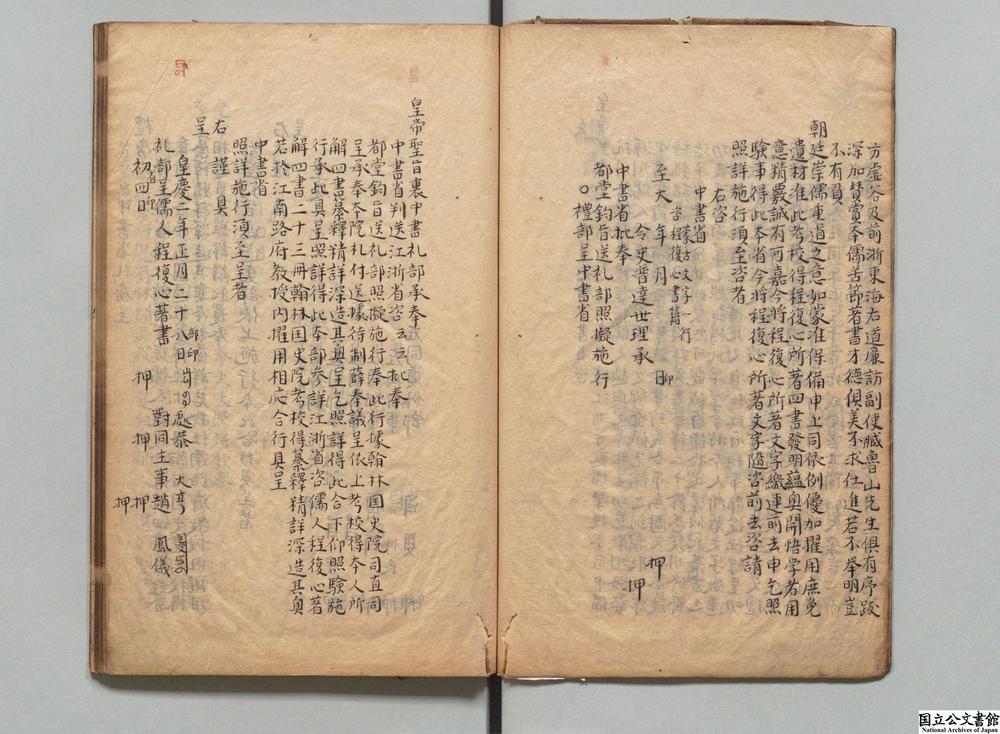 方虚谷及前浙東海右道廉訪副使臧魯山先生俱有序跋
深加賛賞夲儒苦節著書才德俱美不求仕進若不舉明豈
不有負
朝
廷崇儒重道之意如蒙准保備申上司依例優加擢用庶免
遺材准此考校得程復心所著四書發明蘊奥開悟学者用
意精覈誠有可嘉今將程復心所著文字繳連前去申乞照
驗事得此夲省今將程復心所著文字隨咨前去咨請
照詳施行湏至咨者
右咨
中書省
蒙古文字一行
咨程復心書籍
至大 年 月 日印 押
令史普達世理承 押
中書省批奉
都堂鈞旨送礼部照擬施行
○禮部呈中書省
皇帝聖旨裏中書礼部承奉
中書省判送江浙省咨云云批奉
都堂鈞旨送礼部照擬施行奉此行據翰林国史院司直司
呈承奉夲院札付送據待制薛奉議呈依上考校得夲人所
解四書纂釋精詳深造其奥呈乞照詳得此合下仰照驗施
行承此具呈照詳得此夲部參詳江浙省咨儒人程復心著
解四書二十三冊翰林国史院考校得纂釋精詳深造其奥
若於江南路府教授内擢用相應合行具呈
中書省
照詳施行湏至呈者
右謹具
呈
皇慶二年正月二十八日
礼部呈儒人程復心著書 對同主事趙 鳳儀
初四日印 押 押 押
国立公文書館
National Archives of Japan